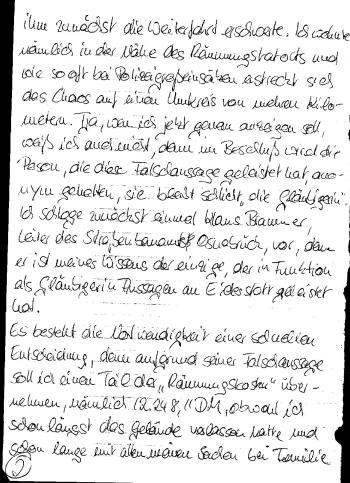 ihm zunächst die Weiterfahrt erschwerte. Ich wohnte
nämlich in der Nähe des Räumungstatorts und
wie so oft bei Polizeigroßeinsätzen erstreckt sich
das Chaos auf einen Umkreis von mehren Kilo-
metern. Tja, wen ich jetzt genau anzeigen soll,
weiß ich auch nicht, denn im Beschluß wird die
Person, die diese Falschaussage geleistet hat, ano-
nym gehalten, sie heißt schlicht „die Gläubigerin".
Ich schlage zunächst einmal Klaus Brammer,
Leiter des Straßenbauamts Osnabrück, vor, denn
er ist meines Wissens der einzige, der in Funktion
als Gläubigerin Aussagen an Eidesstatt geleistet
hat.
Es besteht die Notwendigkeit einer schnellen
Entscheidung, denn aufgrund seiner Falschaussage
soll ich einen Teil der „Räumungskosten" über-
nehmen, nämlich 12.248, DM, obwohl ich
schon längst das Gelände verlassen hatte und
schon lange mit allen meinen Sachen bei Familie
2